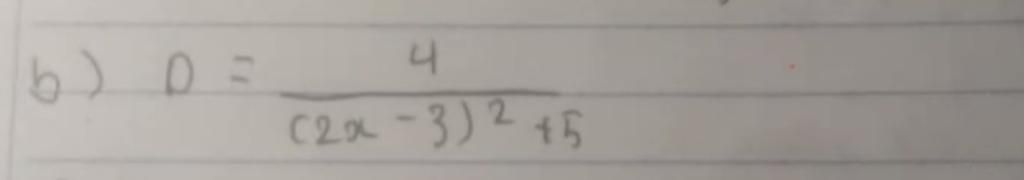 b) D = 4 / ((2x - 3)² + 5)